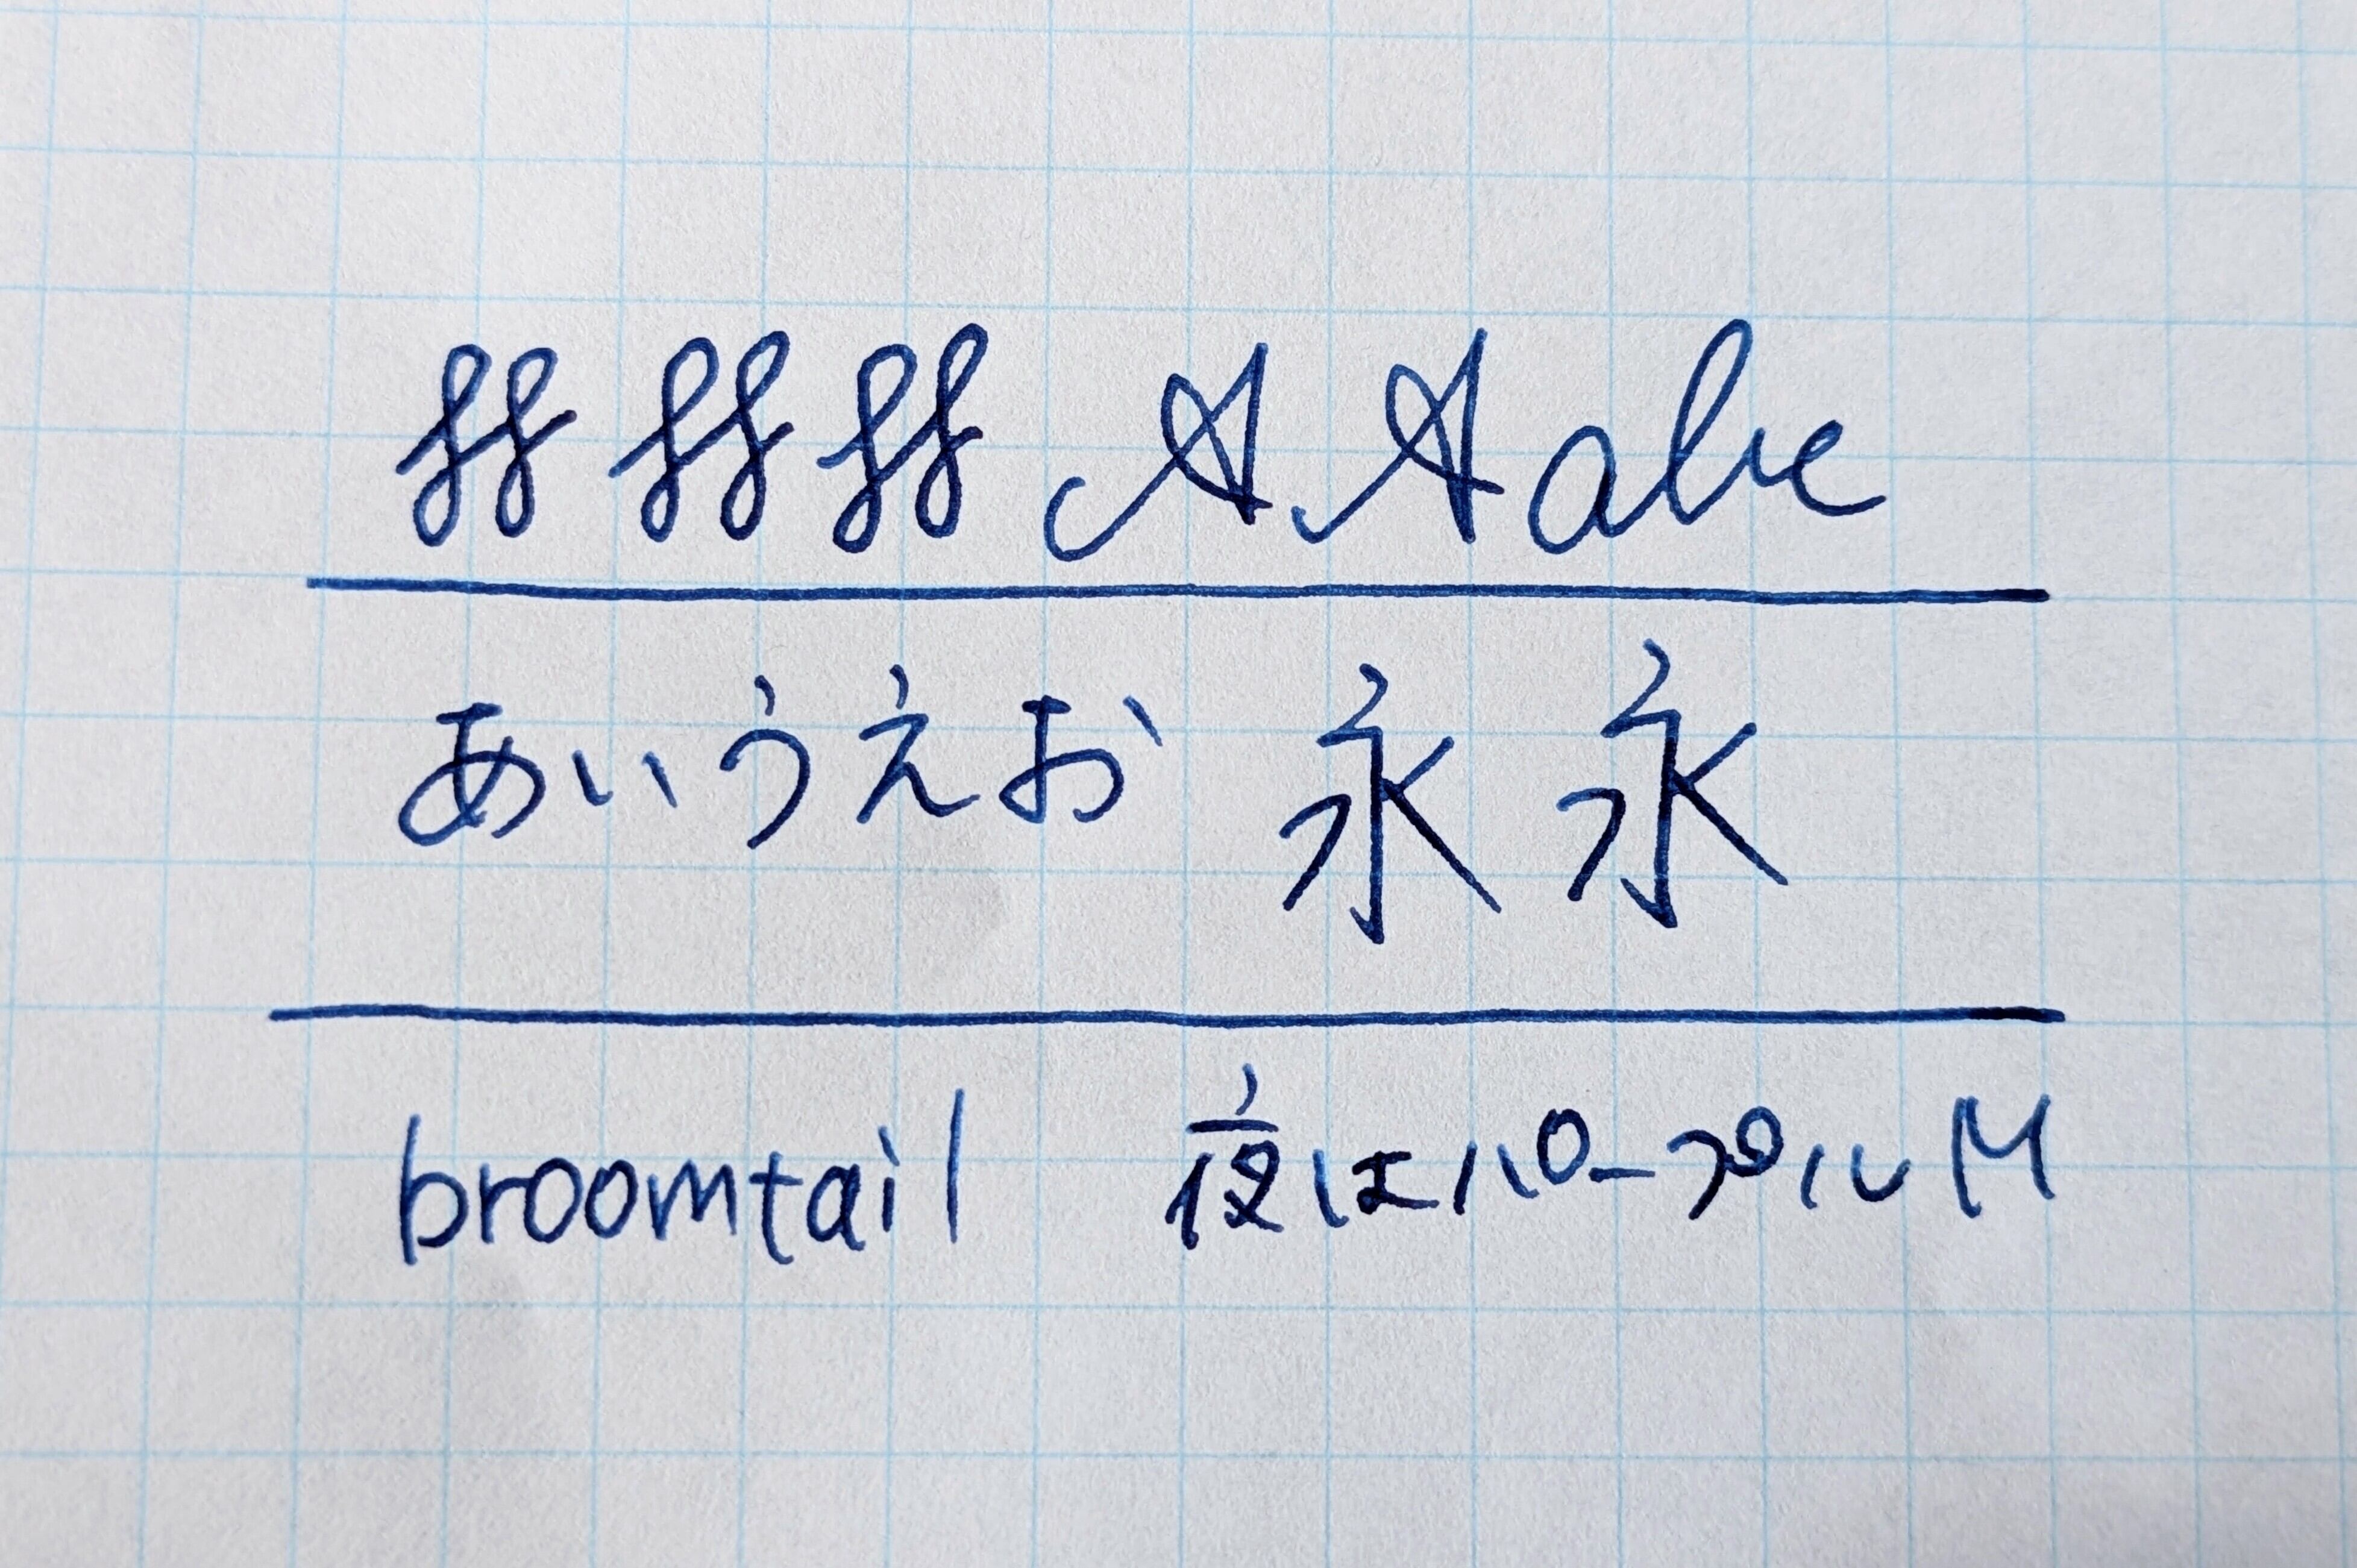 ff ff ff A A abc
あいうえお 永 永
broomtail 夜はパープル M